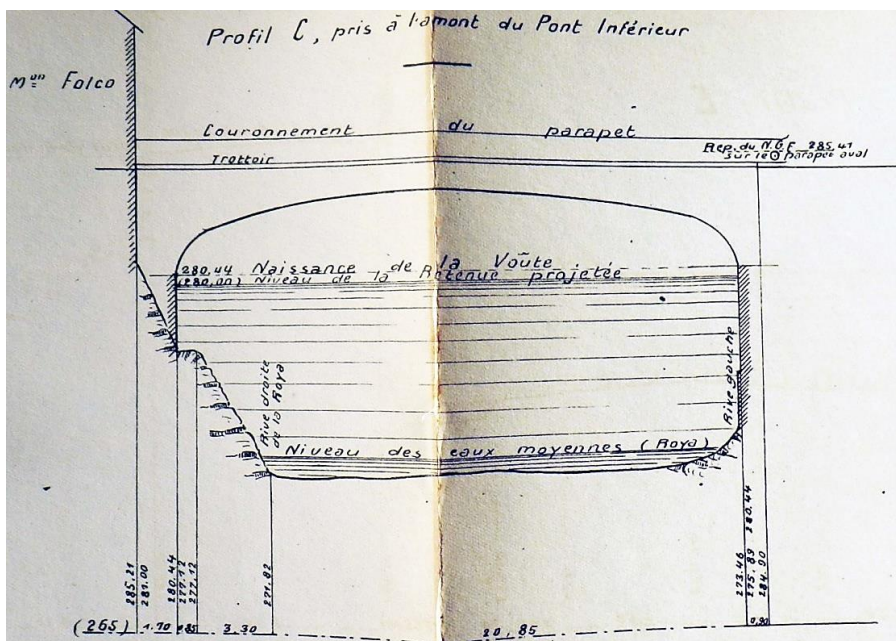 Profil C, pris à l'amont du Pont Inférieur
Mon Folco
Couronnement du parapet
Rep. du N.G.F. 285.41
sur le parapet aval
Trottoir
280.44 Naissance de la Voûte
(280,00) Niveau de la Retenue projetée
Rive droite
de la Roya
Rive gauche
Niveau des eaux moyennes (Roya)
285.21
281.00
280.44
277.12
277.12
271.82
273.46
275.89
280.44
284.90
(265) 1.70 0.85 3.30 20,85 0,90